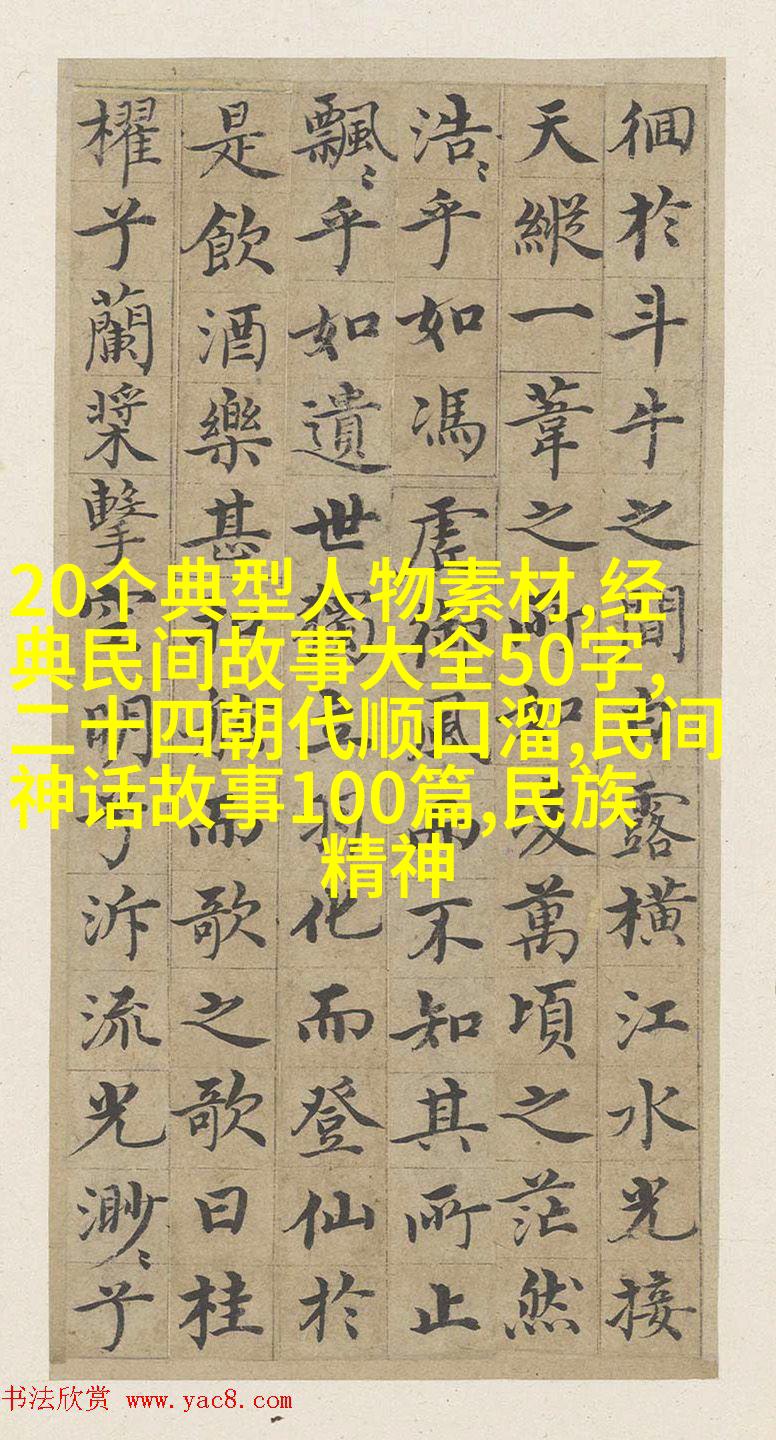 徊於斗牛之間白露橫江水光接
天縱一葦之所如凌萬頃之茫然
浩〻乎如馮虛御風而不知其所止
飄〻乎如遺世獨立羽化而登仙於
是飲酒樂甚扣舷而歌之歌曰桂
櫂兮蘭槳擊空明兮泝流光渺〻兮
20个典型人物素材,经
典民间故事大全50字,
二十四朝代顺口溜,民间
神话故事100篇,民族
精神
书法欣赏 www.yac8.com